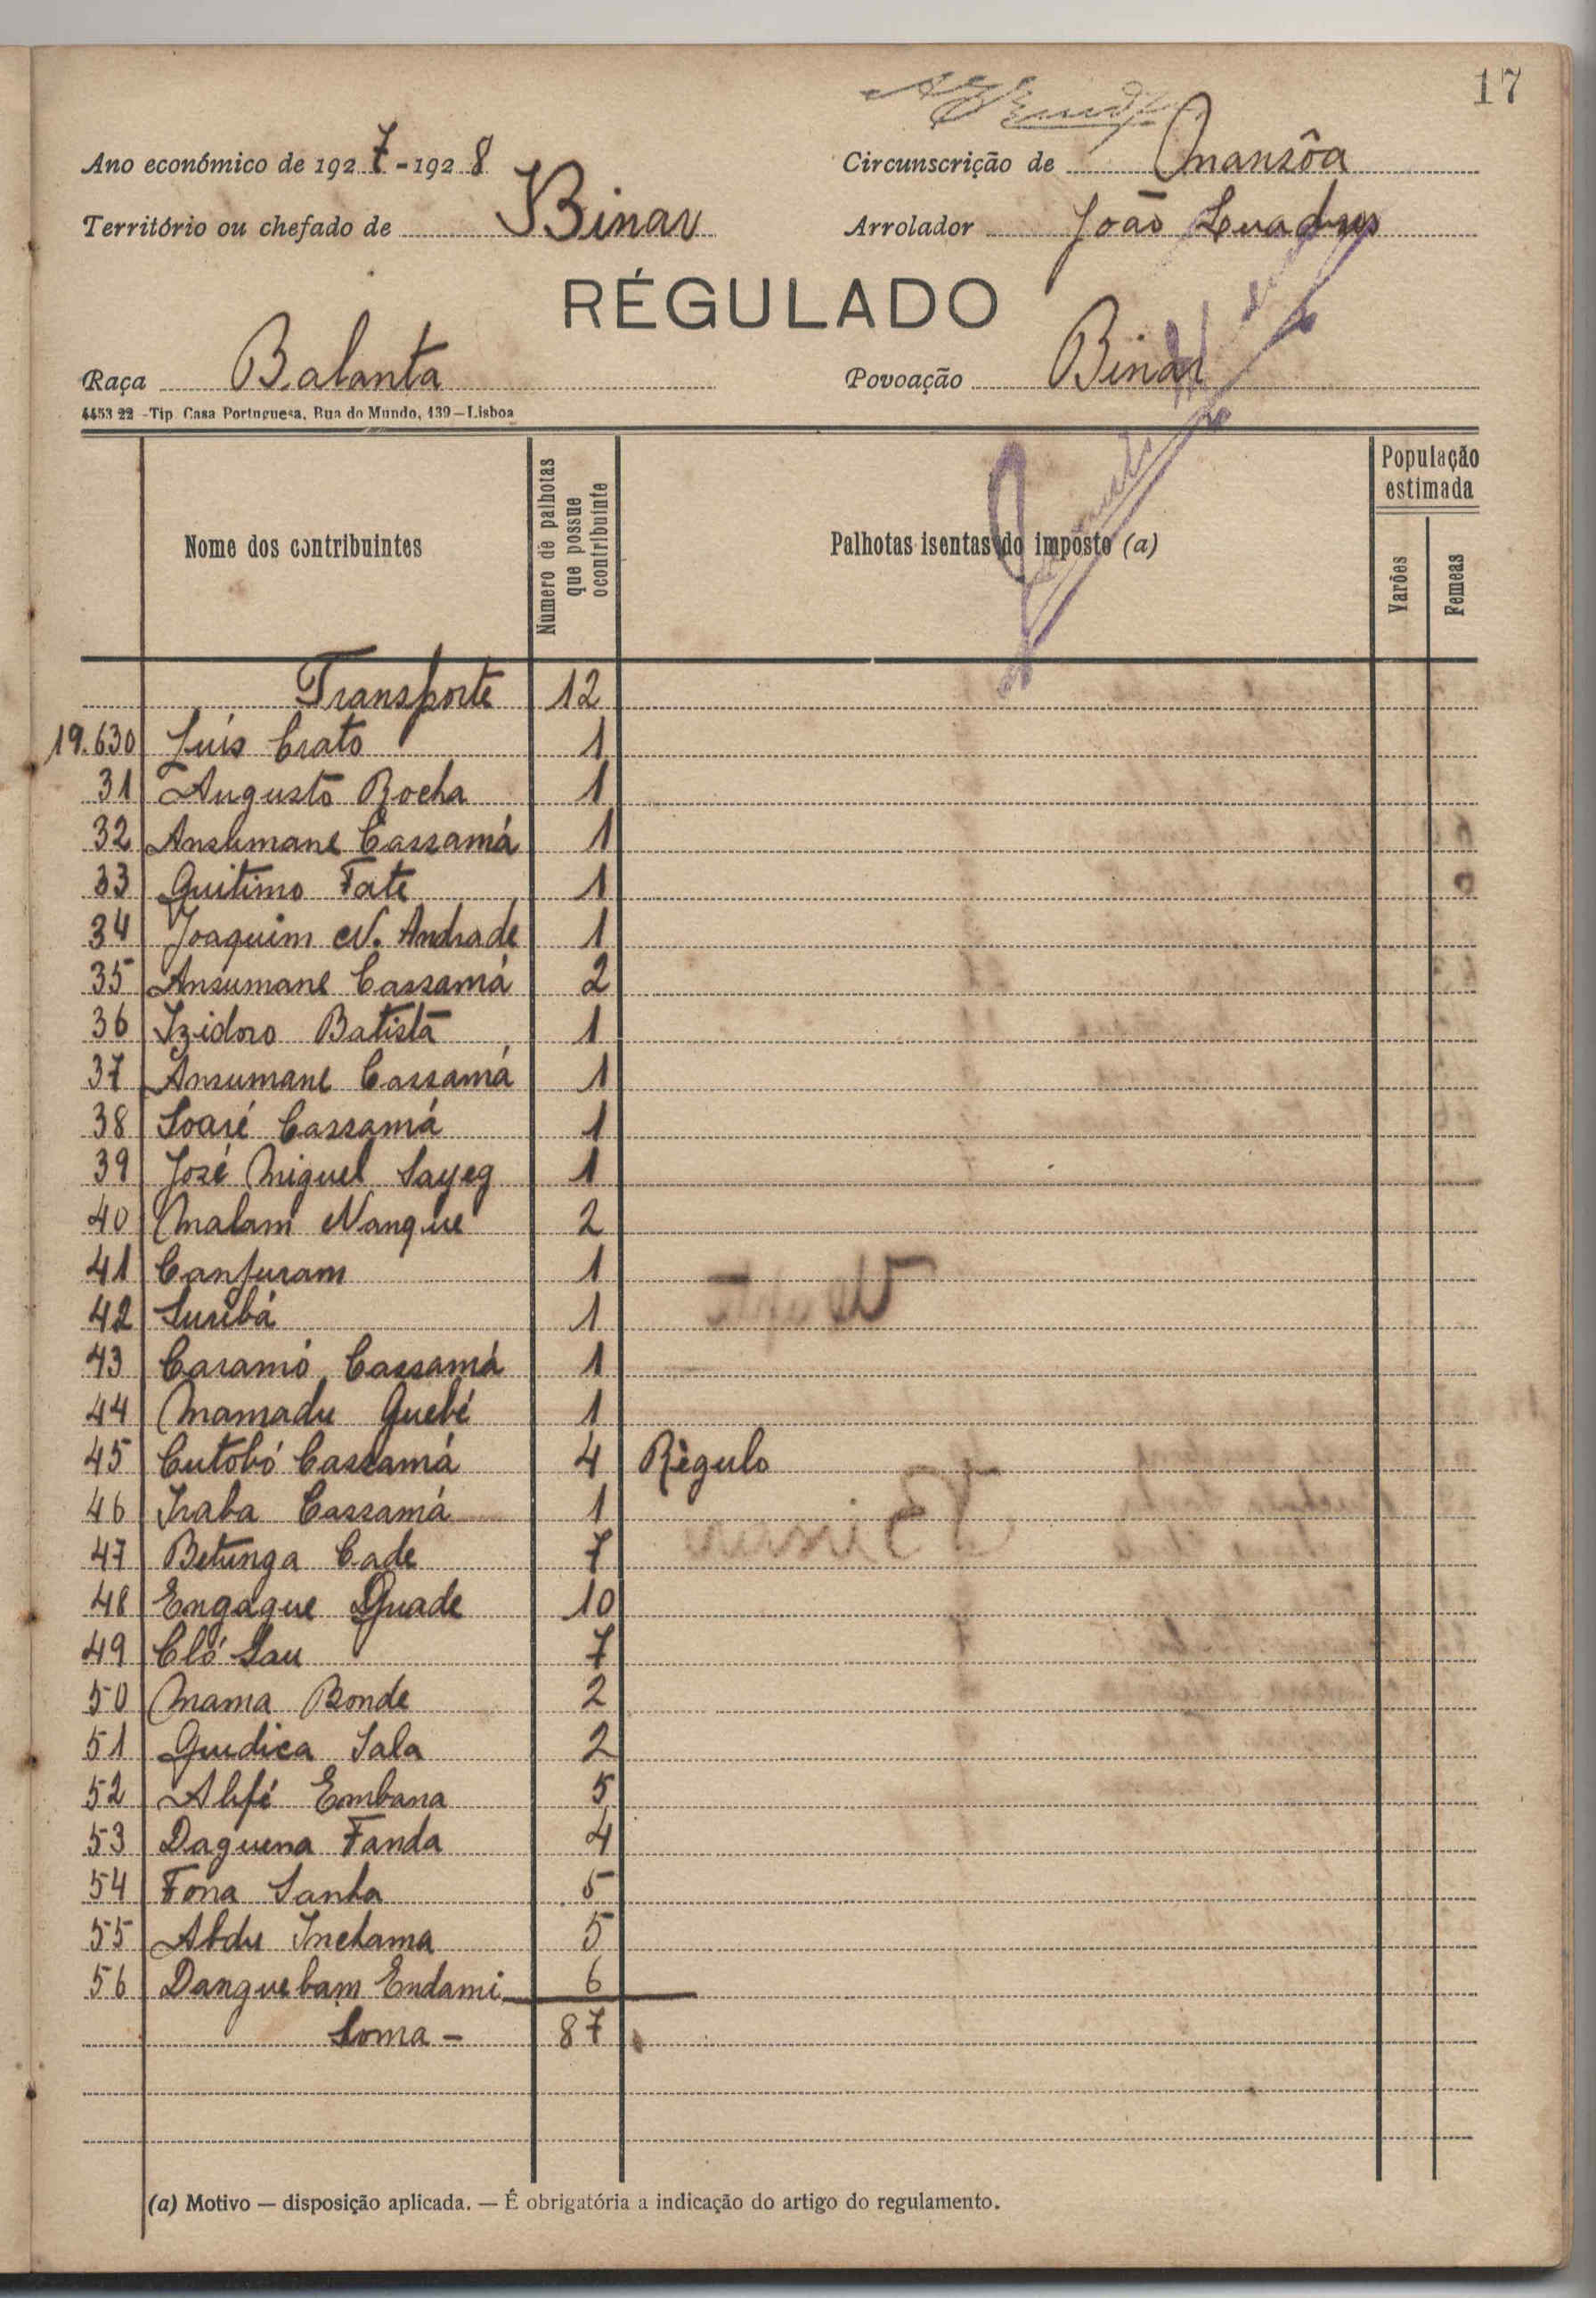 17
Ano económico de 1927-1928
Circunscrição de Mansôa
Território ou chefado de Binar
Arrolador João
RÉGULADO
Raça Balanta
Povoação Binar
4453 22 - Tip. Casa Portuguesa, Rua do Mundo, 139 — Lisboa
Nome dos contribuintes
Numero de palhotas que possue o contribuinte
Palhotas isentas do imposto (a)
População estimada
Varões
Femeas
Transporte 12
19.630 Luís Crato 1
31 Augusto Rocha 1
32 Ansumane Cassamá 1
33 Quitimo Fate 1
34 Joaquim N. Andrade 1
35 Ansumane Cassamá 2
36 Izidoro Batista 1
37 Ansumane Cassamá 1
38 Soaré Cassamá 1
39 José Miguel Sayeg 1
40 Malam Nanque 2
41 Canjuram 1
42 Suribá 1
43 Caramó Cassamá 1
44 Mamadu Quebé 1
45 Cutobó Cassamá 4 Règulo
46 Iraba Cassamá 1
47 Betunga Cade 7
48 Engague Quade 10
49 Cló Sau 7
50 Mama Bonde 2
51 Gudica Sala 2
52 Alifé Embana 5
53 Daguena Fanda 4
54 Fona Sanha 5
55 Abdu Inchama 5
56 Danguebam Endami 6
Soma - 87
(a) Motivo — disposição aplicada. — É obrigatória a indicação do artigo do regulamento.